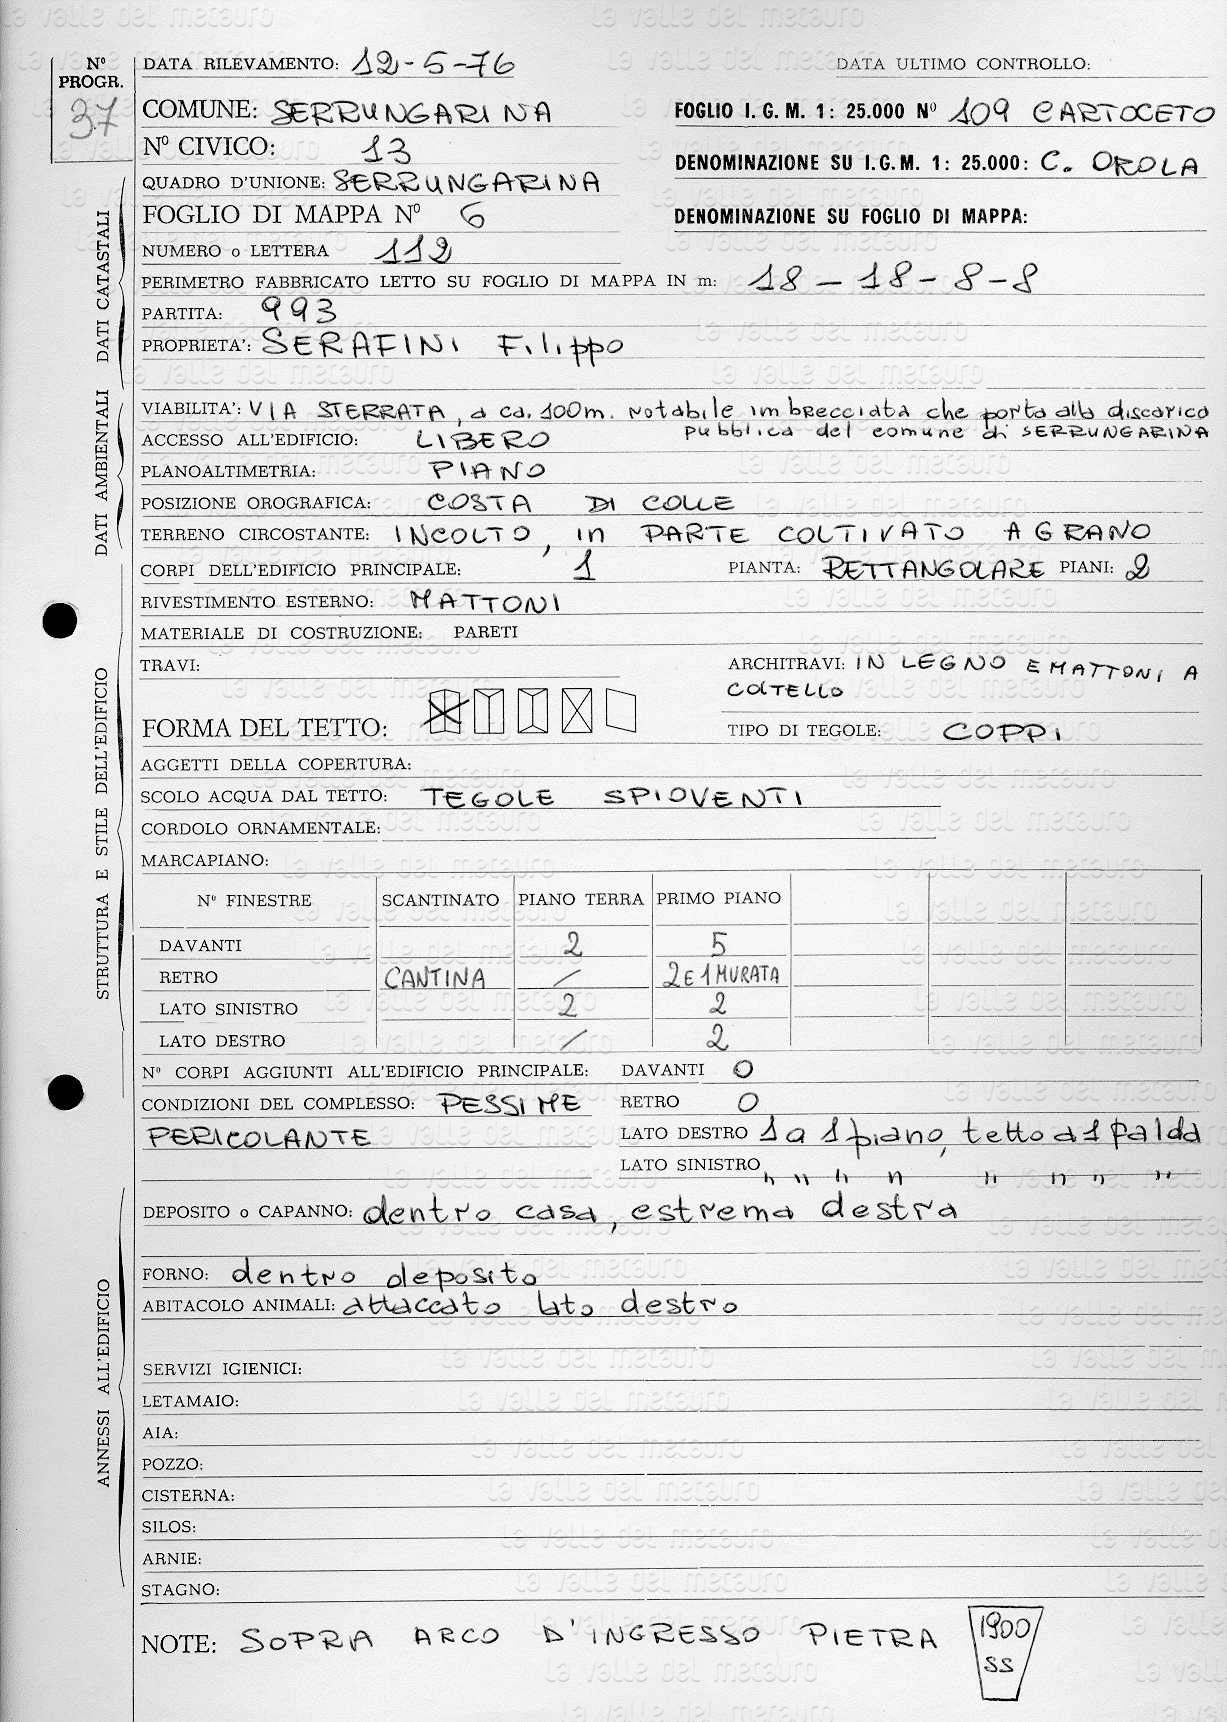 Nº PROGR. 37
DATA RILEVAMENTO: 12-5-76 DATA ULTIMO CONTROLLO:
COMUNE: SERRUNGARINA FOGLIO I.G.M. 1: 25.000 Nº 109 CARTOCETO
Nº CIVICO: 13 DENOMINAZIONE SU I.G.M. 1: 25.000: C. OROLA
QUADRO D'UNIONE: SERRUNGARINA
FOGLIO DI MAPPA Nº 6 DENOMINAZIONE SU FOGLIO DI MAPPA:
NUMERO o LETTERA 112
PERIMETRO FABBRICATO LETTO SU FOGLIO DI MAPPA IN m: 18 - 18 - 8 - 8
PARTITA: 993
PROPRIETA': SERAFINI Filippo
DATI CATASTALI
VIABILITA': VIA STERRATA, a ca. 100m. rotabile imbrecciata che porta alla discarica
pubblica del comune di SERRUNGARINA
ACCESSO ALL'EDIFICIO: LIBERO
PLANOALTIMETRIA: PIANO
POSIZIONE OROGRAFICA: COSTA DI COLLE
TERRENO CIRCOSTANTE: INCOLTO, in PARTE COLTIVATO A GRANO
DATI AMBIENTALI
CORPI DELL'EDIFICIO PRINCIPALE: 1 PIANTA: RETTANGOLARE PIANI: 2
RIVESTIMENTO ESTERNO: MATTONI
MATERIALE DI COSTRUZIONE: PARETI
TRAVI: ARCHITRAVI: IN LEGNO E MATTONI A
COLTELLO
FORMA DEL TETTO: TIPO DI TEGOLE: COPPI
AGGETTI DELLA COPERTURA:
SCOLO ACQUA DAL TETTO: TEGOLE SPIOVENTI
CORDOLO ORNAMENTALE:
MARCAPIANO:
Nº FINESTRE SCANTINATO PIANO TERRA PRIMO PIANO
DAVANTI 2 5
RETRO CANTINA / 2 E 1 MURATA
LATO SINISTRO 2 2
LATO DESTRO / 2
Nº CORPI AGGIUNTI ALL'EDIFICIO PRINCIPALE: DAVANTI 0
CONDIZIONI DEL COMPLESSO: PESSIME RETRO 0
PERICOLANTE LATO DESTRO 1 a 1 piano, tetto a 1 falda
LATO SINISTRO " " " " " " " "
STRUTTURA E STILE DELL'EDIFICIO
DEPOSITO o CAPANNO: dentro casa, estrema destra
FORNO: dentro deposito
ABITACOLO ANIMALI: attaccato lato destro
SERVIZI IGIENICI:
LETAMAIO:
AIA:
POZZO:
CISTERNA:
SILOS:
ARNIE:
STAGNO:
ANNESSI ALL'EDIFICIO
NOTE: SOPRA ARCO D'INGRESSO PIETRA 1900
SS
la valle del metauro